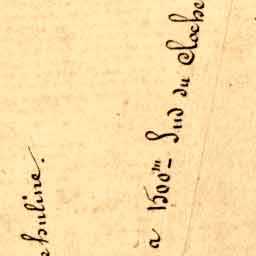 huline.
à 1500m Sud du cloche